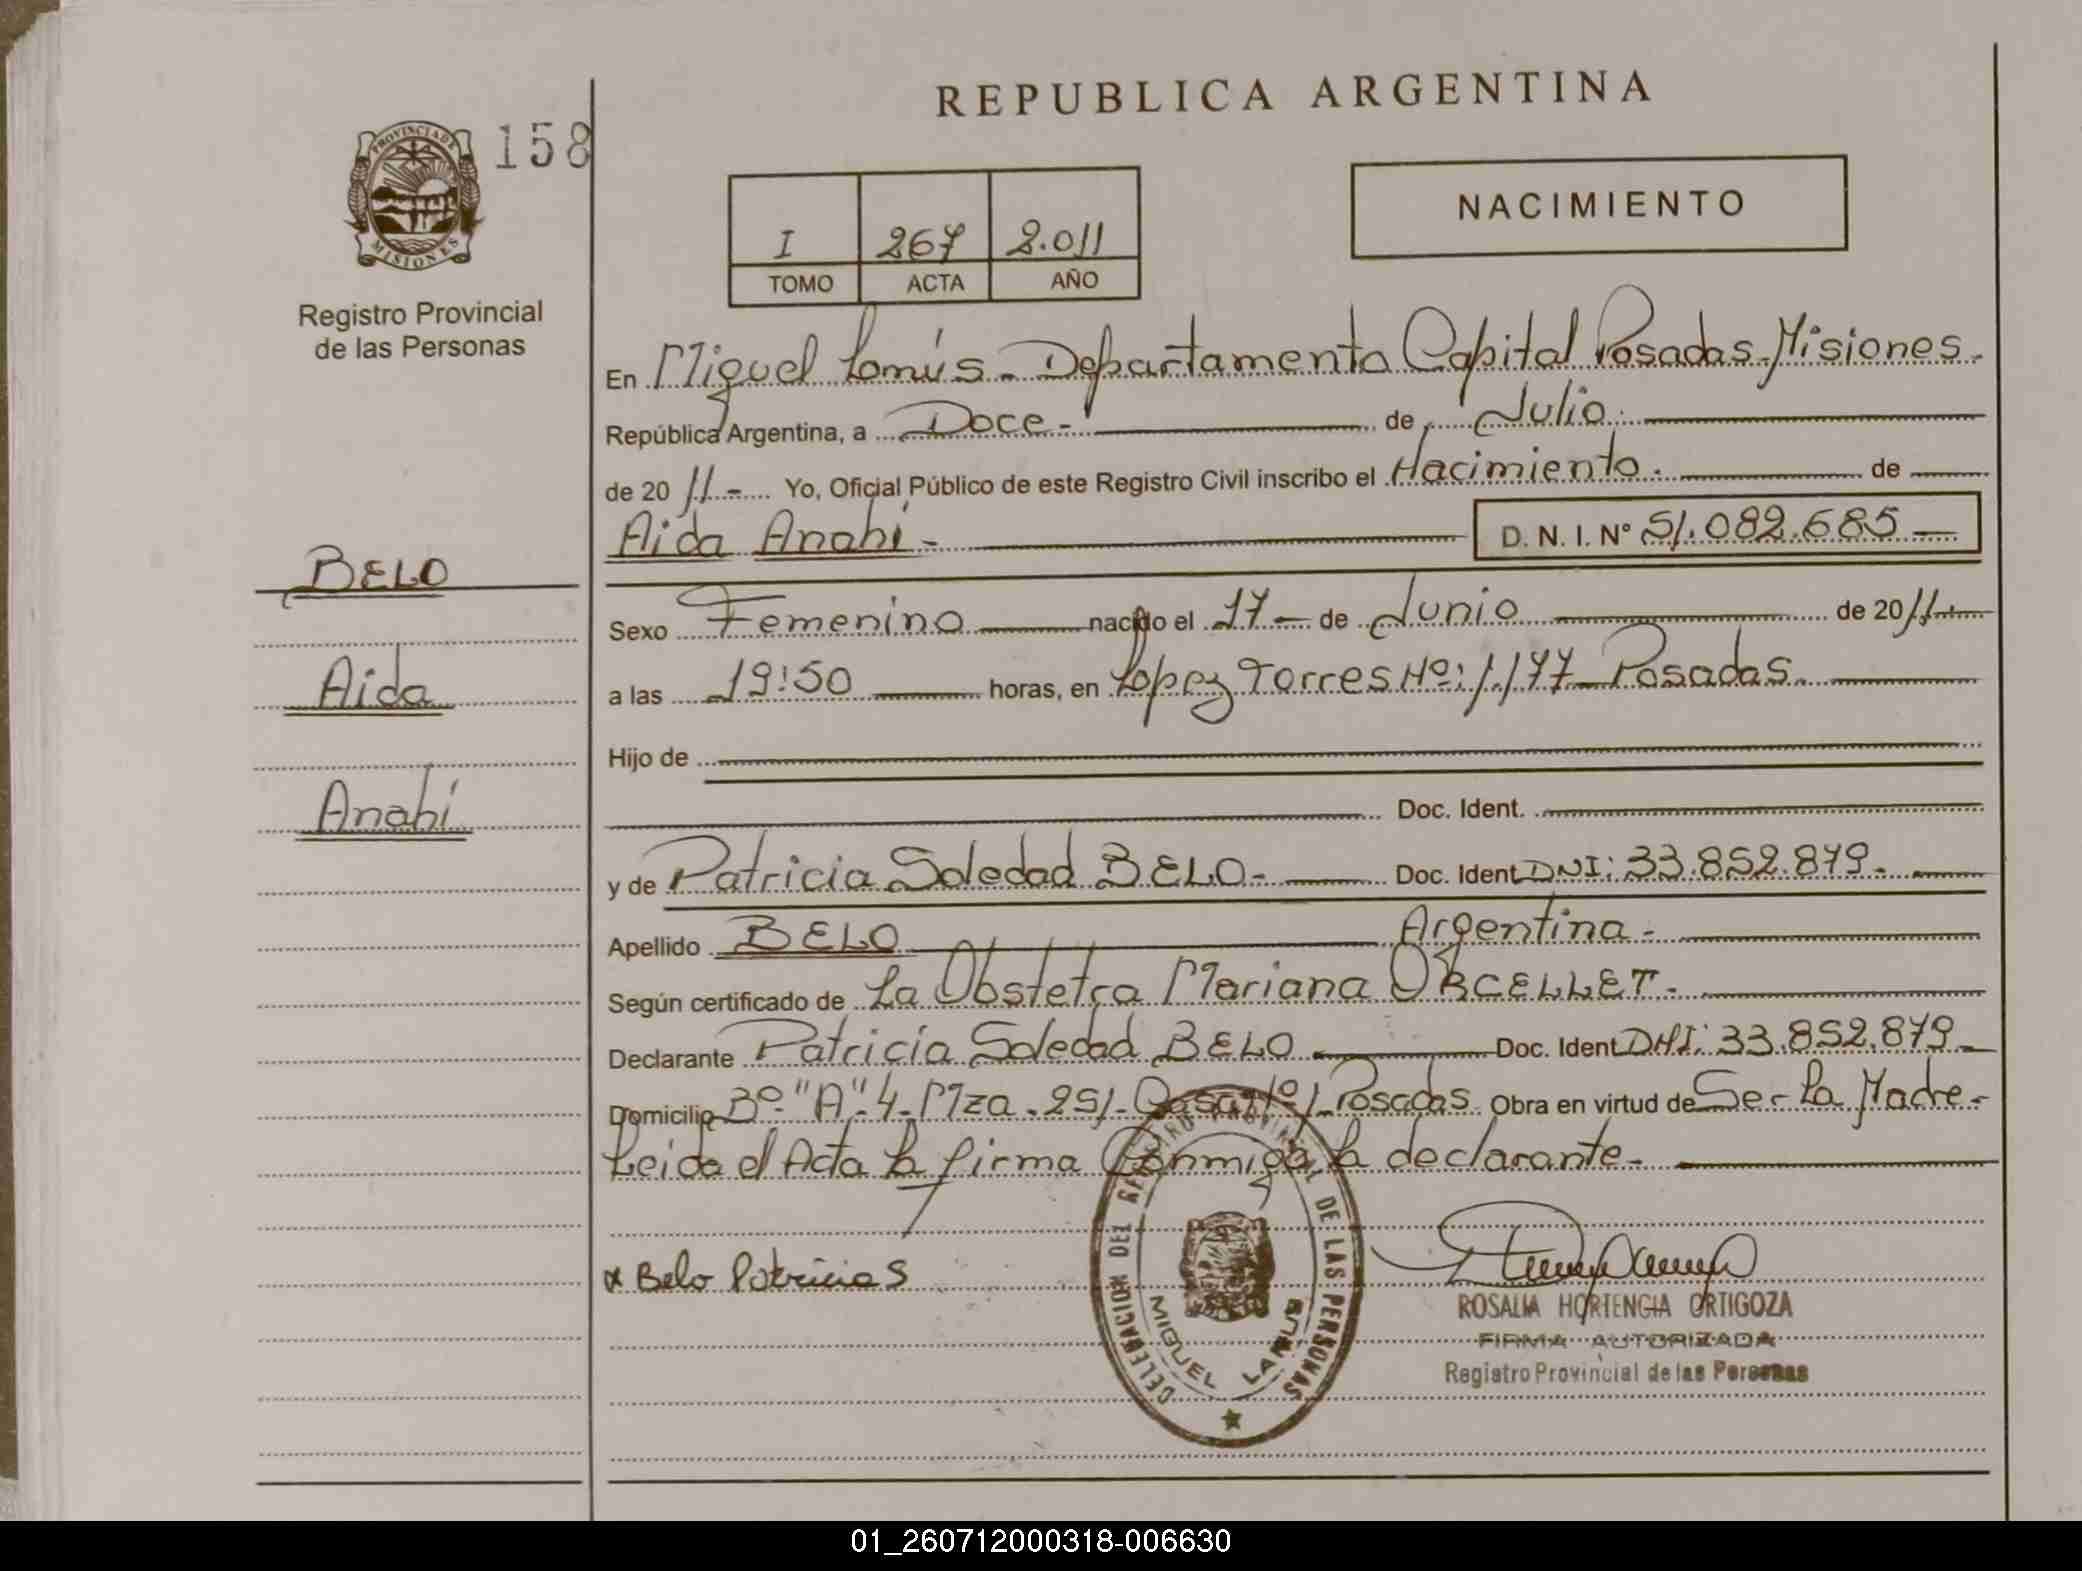 REPUBLICA ARGENTINA
PROVINCIA DE MISIONES
158
NACIMIENTO
I 267 2.011
TOMO ACTA AÑO
Registro Provincial
de las Personas
En Miguel Lanús - Departamento Capital Posadas - Misiones -
República Argentina, a Doce - de Julio.
de 2011 - Yo, Oficial Público de este Registro Civil inscribo el Nacimiento. de
Aida Anahí - D. N. I. Nº 51.082.685 -
BELO
Aida
Anahí
Sexo Femenino nacido el 17 - de Junio de 2011 -
a las 19:50 horas, en Lopez Torres Nº: 1.177 - Posadas.
Hijo de
Doc. Ident.
y de Patricia Soledad BELO - Doc. Ident DNI: 33.852.879 -
Apellido BELO Argentina -
Según certificado de La Obstetra Mariana ORCELLET -
Declarante Patricia Soledad BELO Doc. Ident DNI: 33.852.879 -
Domicilio Bº "A" 4 - Mza. 251 - Casa Nº 1 - Posadas Obra en virtud de Ser La Madre -
Leida el Acta la firma Conmigo la declarante -
x Belo Patricia S
DELEGACION DEL REGISTRO PROVINCIAL DE LAS PERSONAS
MIGUEL LANUS
ROSALIA HORTENCIA ORTIGOZA
FIRMA AUTORIZADA
Registro Provincial de las Personas
01_260712000318-006630